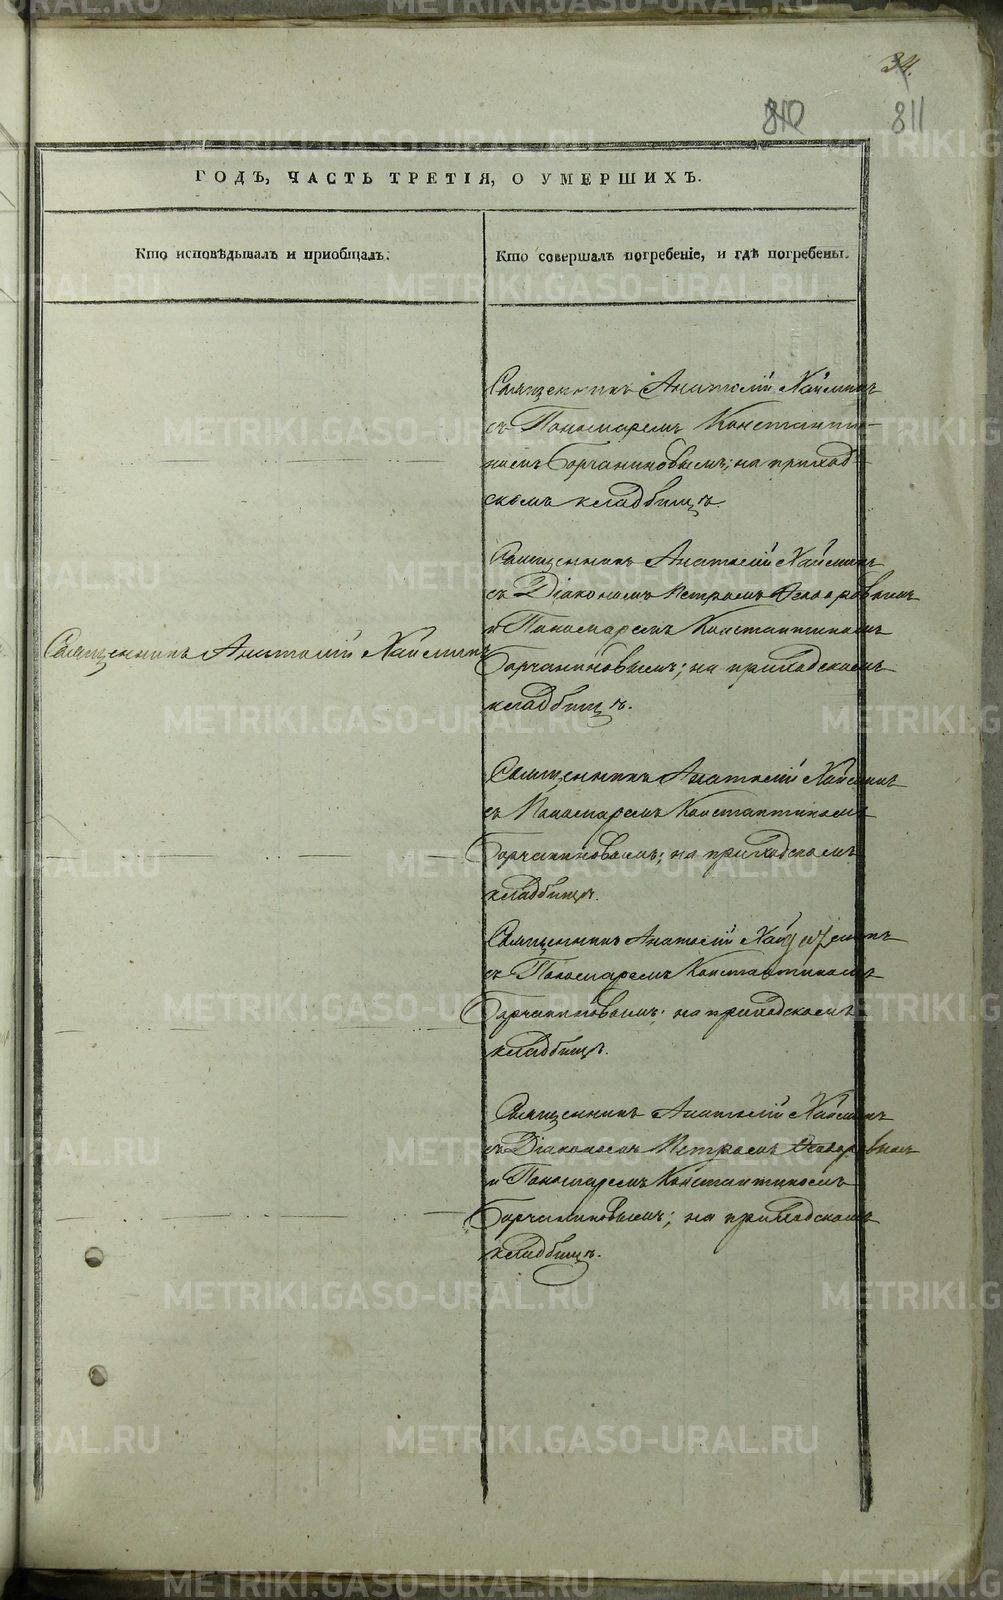 34.
810 811
ГОДЪ, ЧАСТЬ ТРЕТІЯ, О УМЕРШИХЪ.
Кто исповѣдывалъ и пріобщалъ.
Кто совершалъ погребеніе, и гдѣ погребены.
Священникъ Анатолій
съ Пономаремъ Константи-
номъ Борчаниновымъ; на приход-
скомъ кладбищѣ.
Священникъ Анатолій
Священникъ Анатолій
съ Діакономъ Петромъ
и Пономаремъ Константиномъ
Борчаниновымъ; на приходскомъ
кладбищѣ.
Священникъ Анатолій
съ Пономаремъ Константиномъ
Борчаниновымъ; на приходскомъ
кладбищѣ.
Священникъ Анатолій
съ Пономаремъ Константиномъ
Борчаниновымъ; на приходскомъ
кладбищѣ.
Священникъ Анатолій
съ Діакономъ Петромъ
и Пономаремъ Константиномъ
Борчаниновымъ; на приходскомъ
кладбищѣ.
METRIKI.GASO-URAL.RU